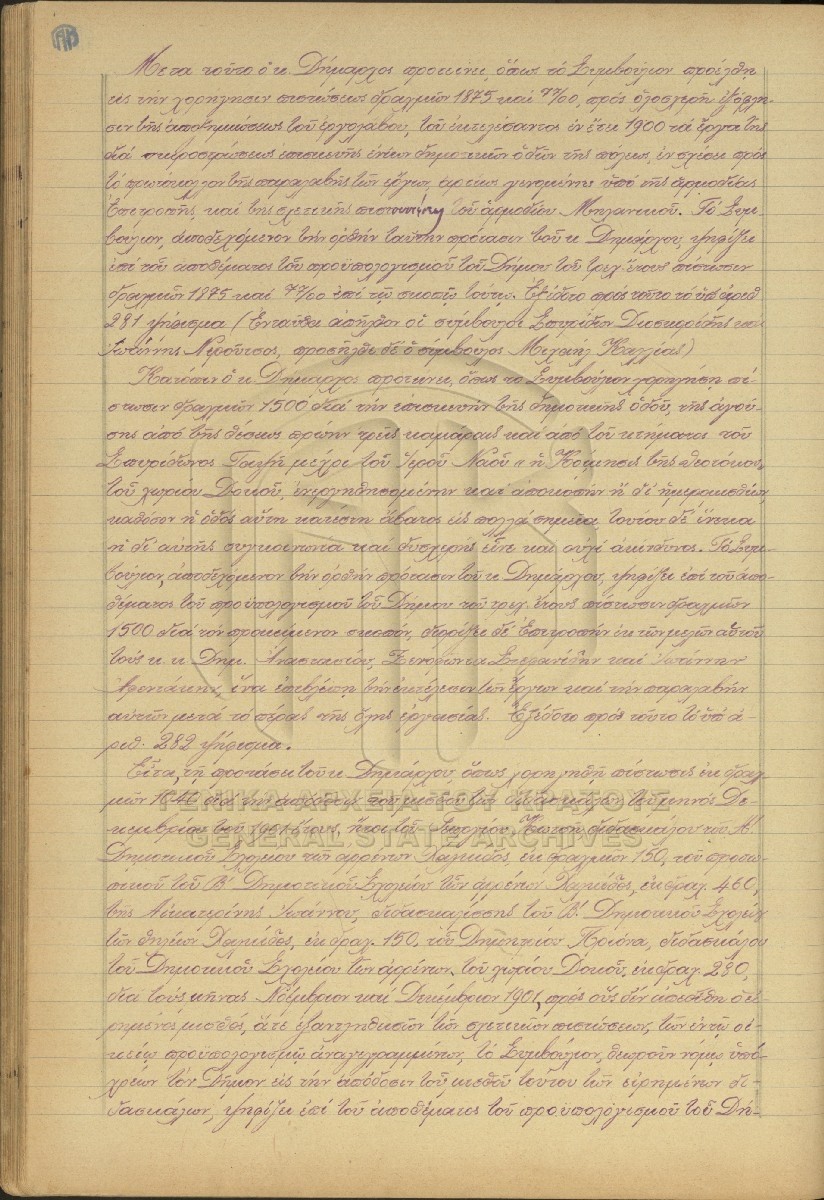 Μετὰ τοῦτο ὁ κ. Δήμαρχος προτείνει, ὅπως τὸ Συμβούλιον προέλθῃ
εἰς τὴν χορήγησιν πιστώσεως δραχμῶν 1875 καὶ 77/00, πρὸς ὁλοσχερῆ ἐξόφλη-
σιν τῆς ἀποζημιώσεως τοῦ ἐργολάβου, τοῦ ἐκτελέσαντος ἐν ἔτει 1900 τὰ ἔργα τῆς
διὰ σκυροστρώσεως ἐπισκευῆς ἐνίων δημοτικῶν ὁδῶν τῆς πόλεως, ἐν σχέσει πρὸς
τὸ πρωτόκολλον τῆς παραλαβῆς τῶν ἔργων, ἀρτίως γενομένης ὑπὸ τῆς ἁρμοδίας
Ἐπιτροπῆς, καὶ τῆς σχετικῆς πιστοποιήσεως τοῦ ἁρμοδίου Μηχανικοῦ. Τὸ Συμ-
βούλιον, ἀποδεχόμενον τὴν ὀρθὴν ταύτην πρότασιν τοῦ κ. Δημάρχου, ψηφίζει
ἐπὶ τοῦ ἀποθέματος τοῦ προϋπολογισμοῦ τοῦ Δήμου τοῦ τρεχ. ἔτους πίστωσιν
δραχμῶν 1875 καὶ 77/00 ἐπὶ τῷ σκοπῷ τούτῳ. Ἐξεδόθη πρὸς τοῦτο τὸ ὑπ' ἀριθ.
281 ψήφισμα (Ἐνταῦθα ἀπῆλθον οἱ σύμβουλοι Σπυρίδων Διοσκορίδης καὶ
Ἰωάννης Νερούτσος, προσῆλθε δὲ ὁ σύμβουλος Μιχαὴλ Καλλίας)
Κατόπιν ὁ κ. Δήμαρχος προτείνει, ὅπως τὸ Συμβούλιον χορηγήσῃ πί-
στωσιν δραχμῶν 1500 διὰ τὴν ἐπισκευὴν τῆς δημοτικῆς ὁδοῦ, τῆς ἀγού-
σης ἀπὸ τῆς θέσεως πρώην τρεῖς καμάραις καὶ ἀπὸ τοῦ κτήματος τοῦ
Σπυρίδωνος μέχρι τοῦ Ἱεροῦ Ναοῦ "ἡ Κοίμησις τῆς Θεοτόκου"
τοῦ χωρίου Δοκοῦ, ἐνεργηθησομένην κατ' ἀποκοπὴν ἢ δι' ἡμερομισθίων,
καθόσον ἡ ὁδὸς αὕτη κατέστη ἄβατος εἰς πολλὰ σημεῖα, τούτου δὲ ἕνεκα
ἡ δι' αὐτῆς συγκοινωνία καὶ δυσχερὴς εἶνε καὶ οὐχὶ ἀκίνδυνος. Τὸ Συμ-
βούλιον, ἀποδεχόμενον τὴν ὀρθὴν πρότασιν τοῦ κ. Δημάρχου, ψηφίζει ἐπὶ τοῦ ἀπο-
θέματος τοῦ προϋπολογισμοῦ τοῦ Δήμου τοῦ τρεχ. ἔτους πίστωσιν δραχμῶν
1500 διὰ τὸν προκείμενον σκοπόν, διορίζει δὲ Ἐπιτροπὴν ἐκ τῶν μελῶν αὑτοῦ
τοὺς κ. κ. Δημ. Ἀναστασίου, Ξενοφῶντα Στεφανίδην καὶ Ἰωάννην
ἵνα ἐπιβλέπῃ τὴν ἐκτέλεσιν τῶν ἔργων καὶ τὴν παραλαβὴν
αὐτῶν μετὰ τὸ πέρας τῆς ὅλης ἐργασίας. Ἐξεδόθη πρὸς τοῦτο τὸ ὑπ' ἀ-
ριθ. 282 ψήφισμα.
Εἶτα, τῇ προτάσει τοῦ κ. Δημάρχου, ὅπως χορηγηθῇ πίστωσις ἐκ δραχ-
μῶν 1040 διὰ τὴν ἀπόδοσιν τοῦ μισθοῦ τῶν διδασκάλων τοῦ μηνὸς Δε-
κεμβρίου τοῦ 1901 ἔτους, ἤτοι τοῦ διδασκάλου τοῦ Α΄
Δημοτικοῦ Σχολείου τῶν ἀρρένων Χαλκίδος, ἐκ δραχμῶν 150, τοῦ προσω-
πικοῦ τοῦ Β΄ Δημοτικοῦ Σχολείου τῶν ἀρρένων Χαλκίδος, ἐκ δραχ. 460,
τῆς Αἰκατερίνης Ἰωάννου, διδασκαλίσσης τοῦ Β΄. Δημοτικοῦ Σχολείου
τῶν θηλέων Χαλκίδος, ἐκ δραχ. 150, τοῦ Δημητρίου Πριόνα, διδασκάλου
τοῦ Δημοτικοῦ Σχολείου τῶν ἀρρένων τοῦ χωρίου Δοκοῦ, ἐκ δραχ. 280,
διὰ τοὺς μῆνας Νοέμβριον καὶ Δεκέμβριον 1901, πρὸς οὓς δὲν ἀπεδόθη ὁ εἰ-
ρημένος μισθός, ἅτε ἐξαντληθεισῶν τῶν σχετικῶν πιστώσεων, τῶν ἐν τῷ οἰ-
κείῳ προϋπολογισμῷ ἀναγεγραμμένων, τὸ Συμβούλιον, θεωροῦν νόμῳ ὑπό-
χρεων τὸν Δῆμον εἰς τὴν ἀπόδοσιν τοῦ μισθοῦ τούτου τῶν εἰρημένων δι-
δασκάλων, ψηφίζει ἐπὶ τοῦ ἀποθέματος τοῦ προϋπολογισμοῦ τοῦ Δή-
ΓΕΝΙΚΑ ΑΡΧΕΙΑ ΤΟΥ ΚΡΑΤΟΥΣ
GENERAL STATE ARCHIVES